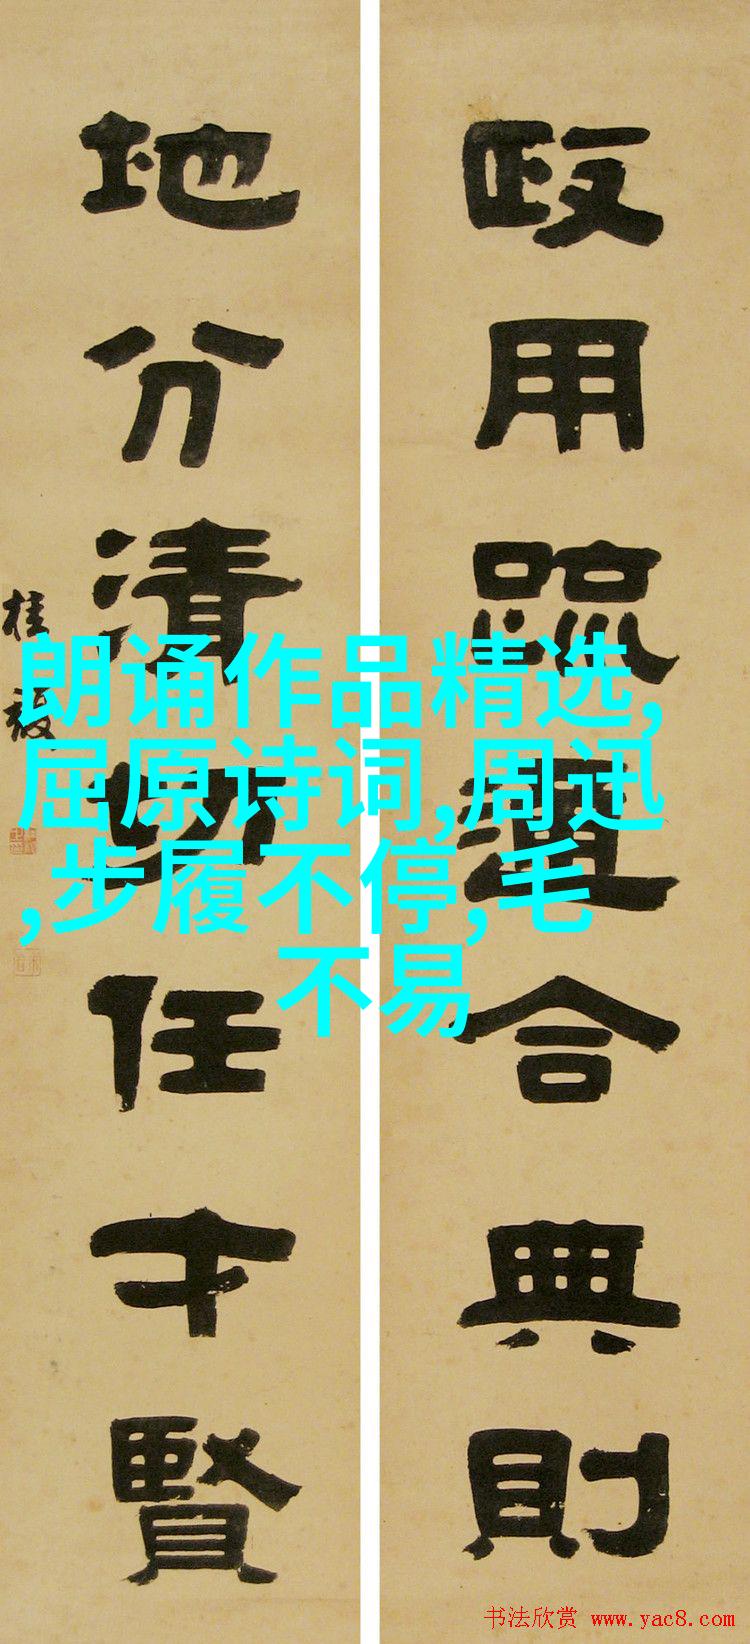 政用疏通合典則
地分清切任才賢
桂馥
朗诵作品精选,
屈原诗词,周迅
,步履不停,毛
不易
书法欣赏 www.yac8.com